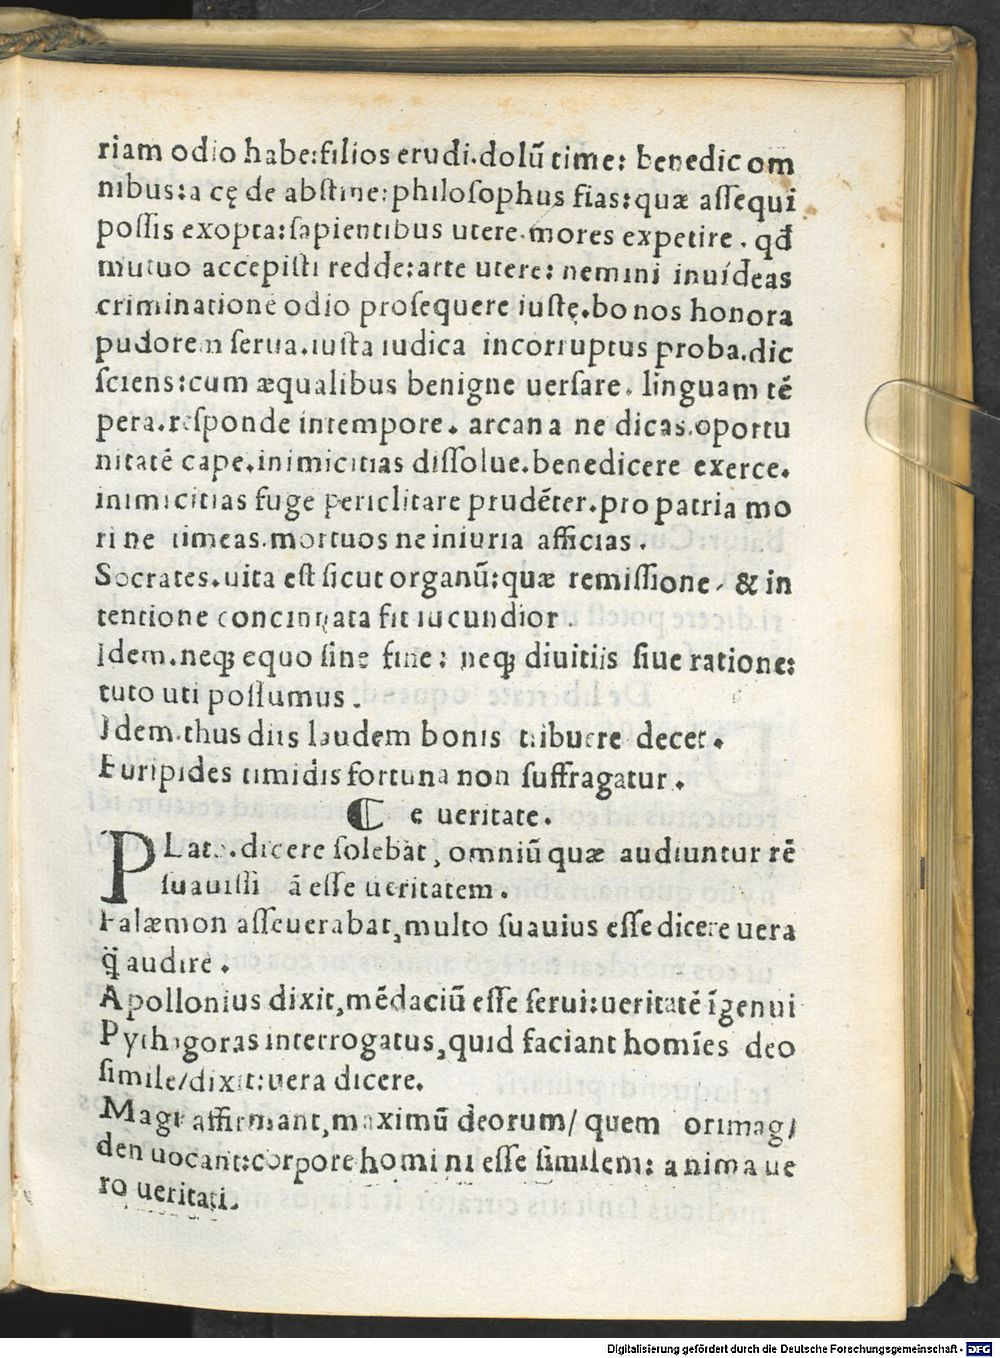 riam odio habe:filios erudi.dolū time: benedic om
nibus:a cę de abstine:philosophus fias:quæ assequi
possis exopta:sapientibus utere.mores expetire. qđ
mutuo accepisti redde:arte utere: nemini inuideas
criminatione odio prosequere iustę.bonos honora
pudorem serua.iusta iudica incorruptus proba.dic
sciens:cum æqualibus benigne uersare. linguam tē
pera.responde in tempore. arcana ne dicas.oportu
nitatē cape.inimicitias dissolue.benedicere exerce.
inimicitias fuge periclitare prudēter.pro patria mo
ri ne timeas.mortuos ne iniuria afficias.
Socrates.uita est sicut organū:quæ remissione, & in
tentione concinnata fit iucundior.
Idem.neqȝ equo sine fine: neqȝ diuitiis siue ratione:
tuto uti possumus.
Idem.thus diis laudem bonis tribuere decet.
Euripides timidis fortuna non suffragatur.
e ueritate.
PLato.dicere solebat, omniū quæ audiuntur rē
suauissi ā esse ueritatem.
Palæmon asseuerabat,multo suauius esse dicere uera
q̄ audire.
Apollonius dixit,mēdaciū esse serui:ueritatē īgenui
Pythagoras interrogatus,quid faciant homīes deo
simile/dixit:uera dicere.
Magi affirmant,maximū deorum/ quem orimag/
den uocant:corpore homini esse similem: anima ue
ro ueritati.
Digitalisierung gefördert durch die Deutsche Forschungsgemeinschaft - DFG